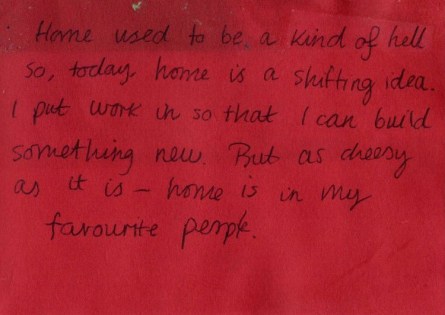 Home used to be a kind of hell
so, today home is a shifting idea.
I put work in so that I can build
something new. But as cheesy
as it is – home is in my
favourite people.